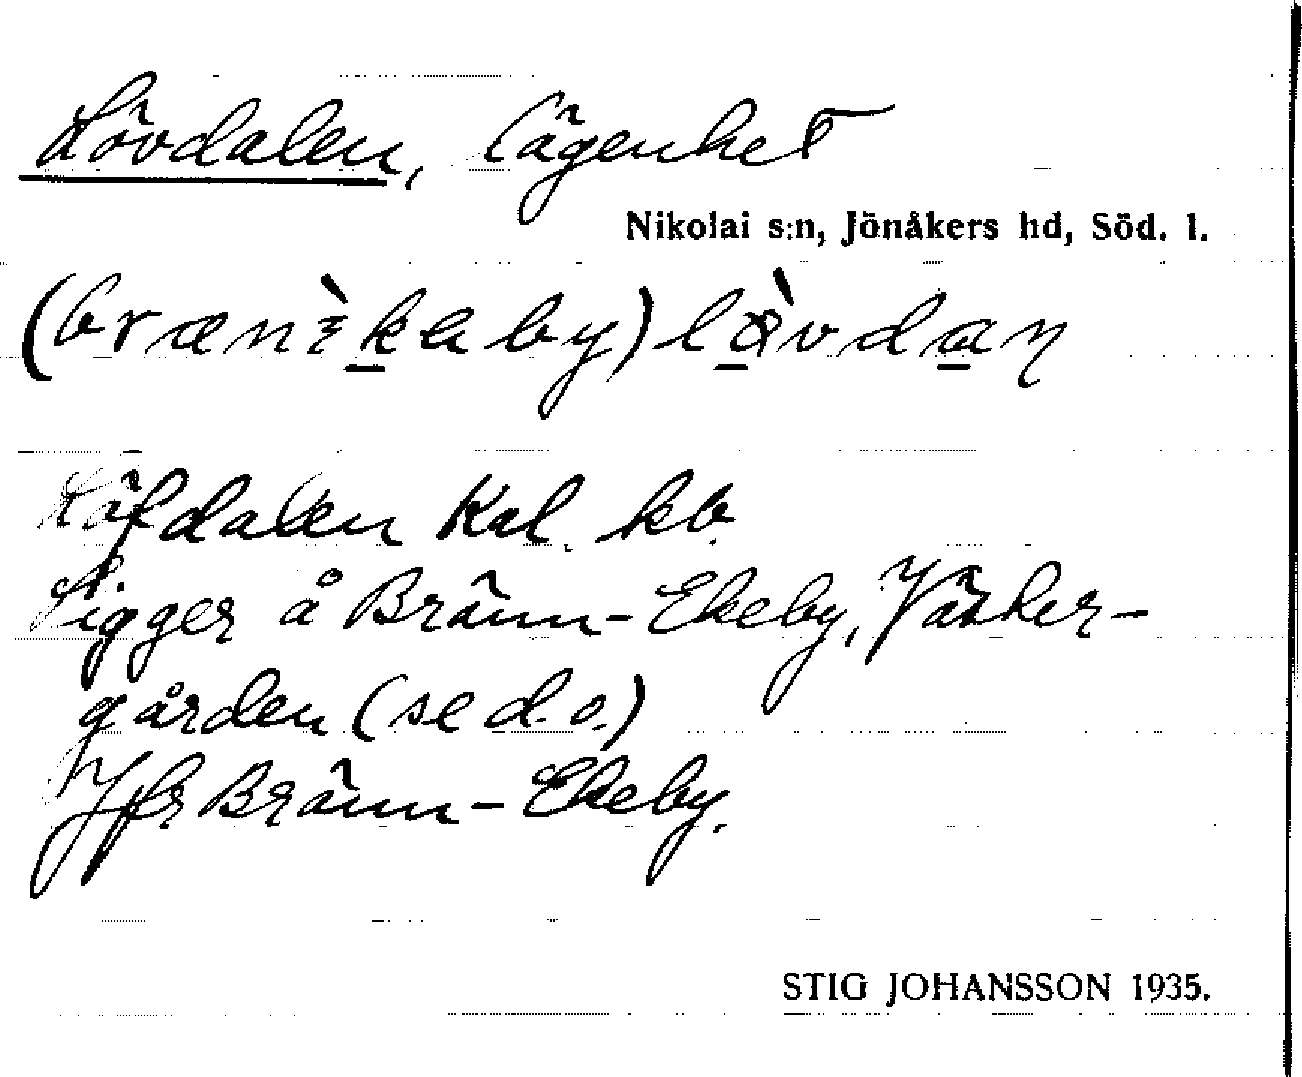 Lövdalen, lägenhet
Nikolai s:n, Jönåkers hd, Söd. l.
(bræn:̀kebу) løvdan
Löfdalen Kal. kb.
Ligger å Bränn-Ekeby, Väster-
gården (se d. o.)
Jfr Bränn-Ekeby.
STIG JOHANSSON 1935.